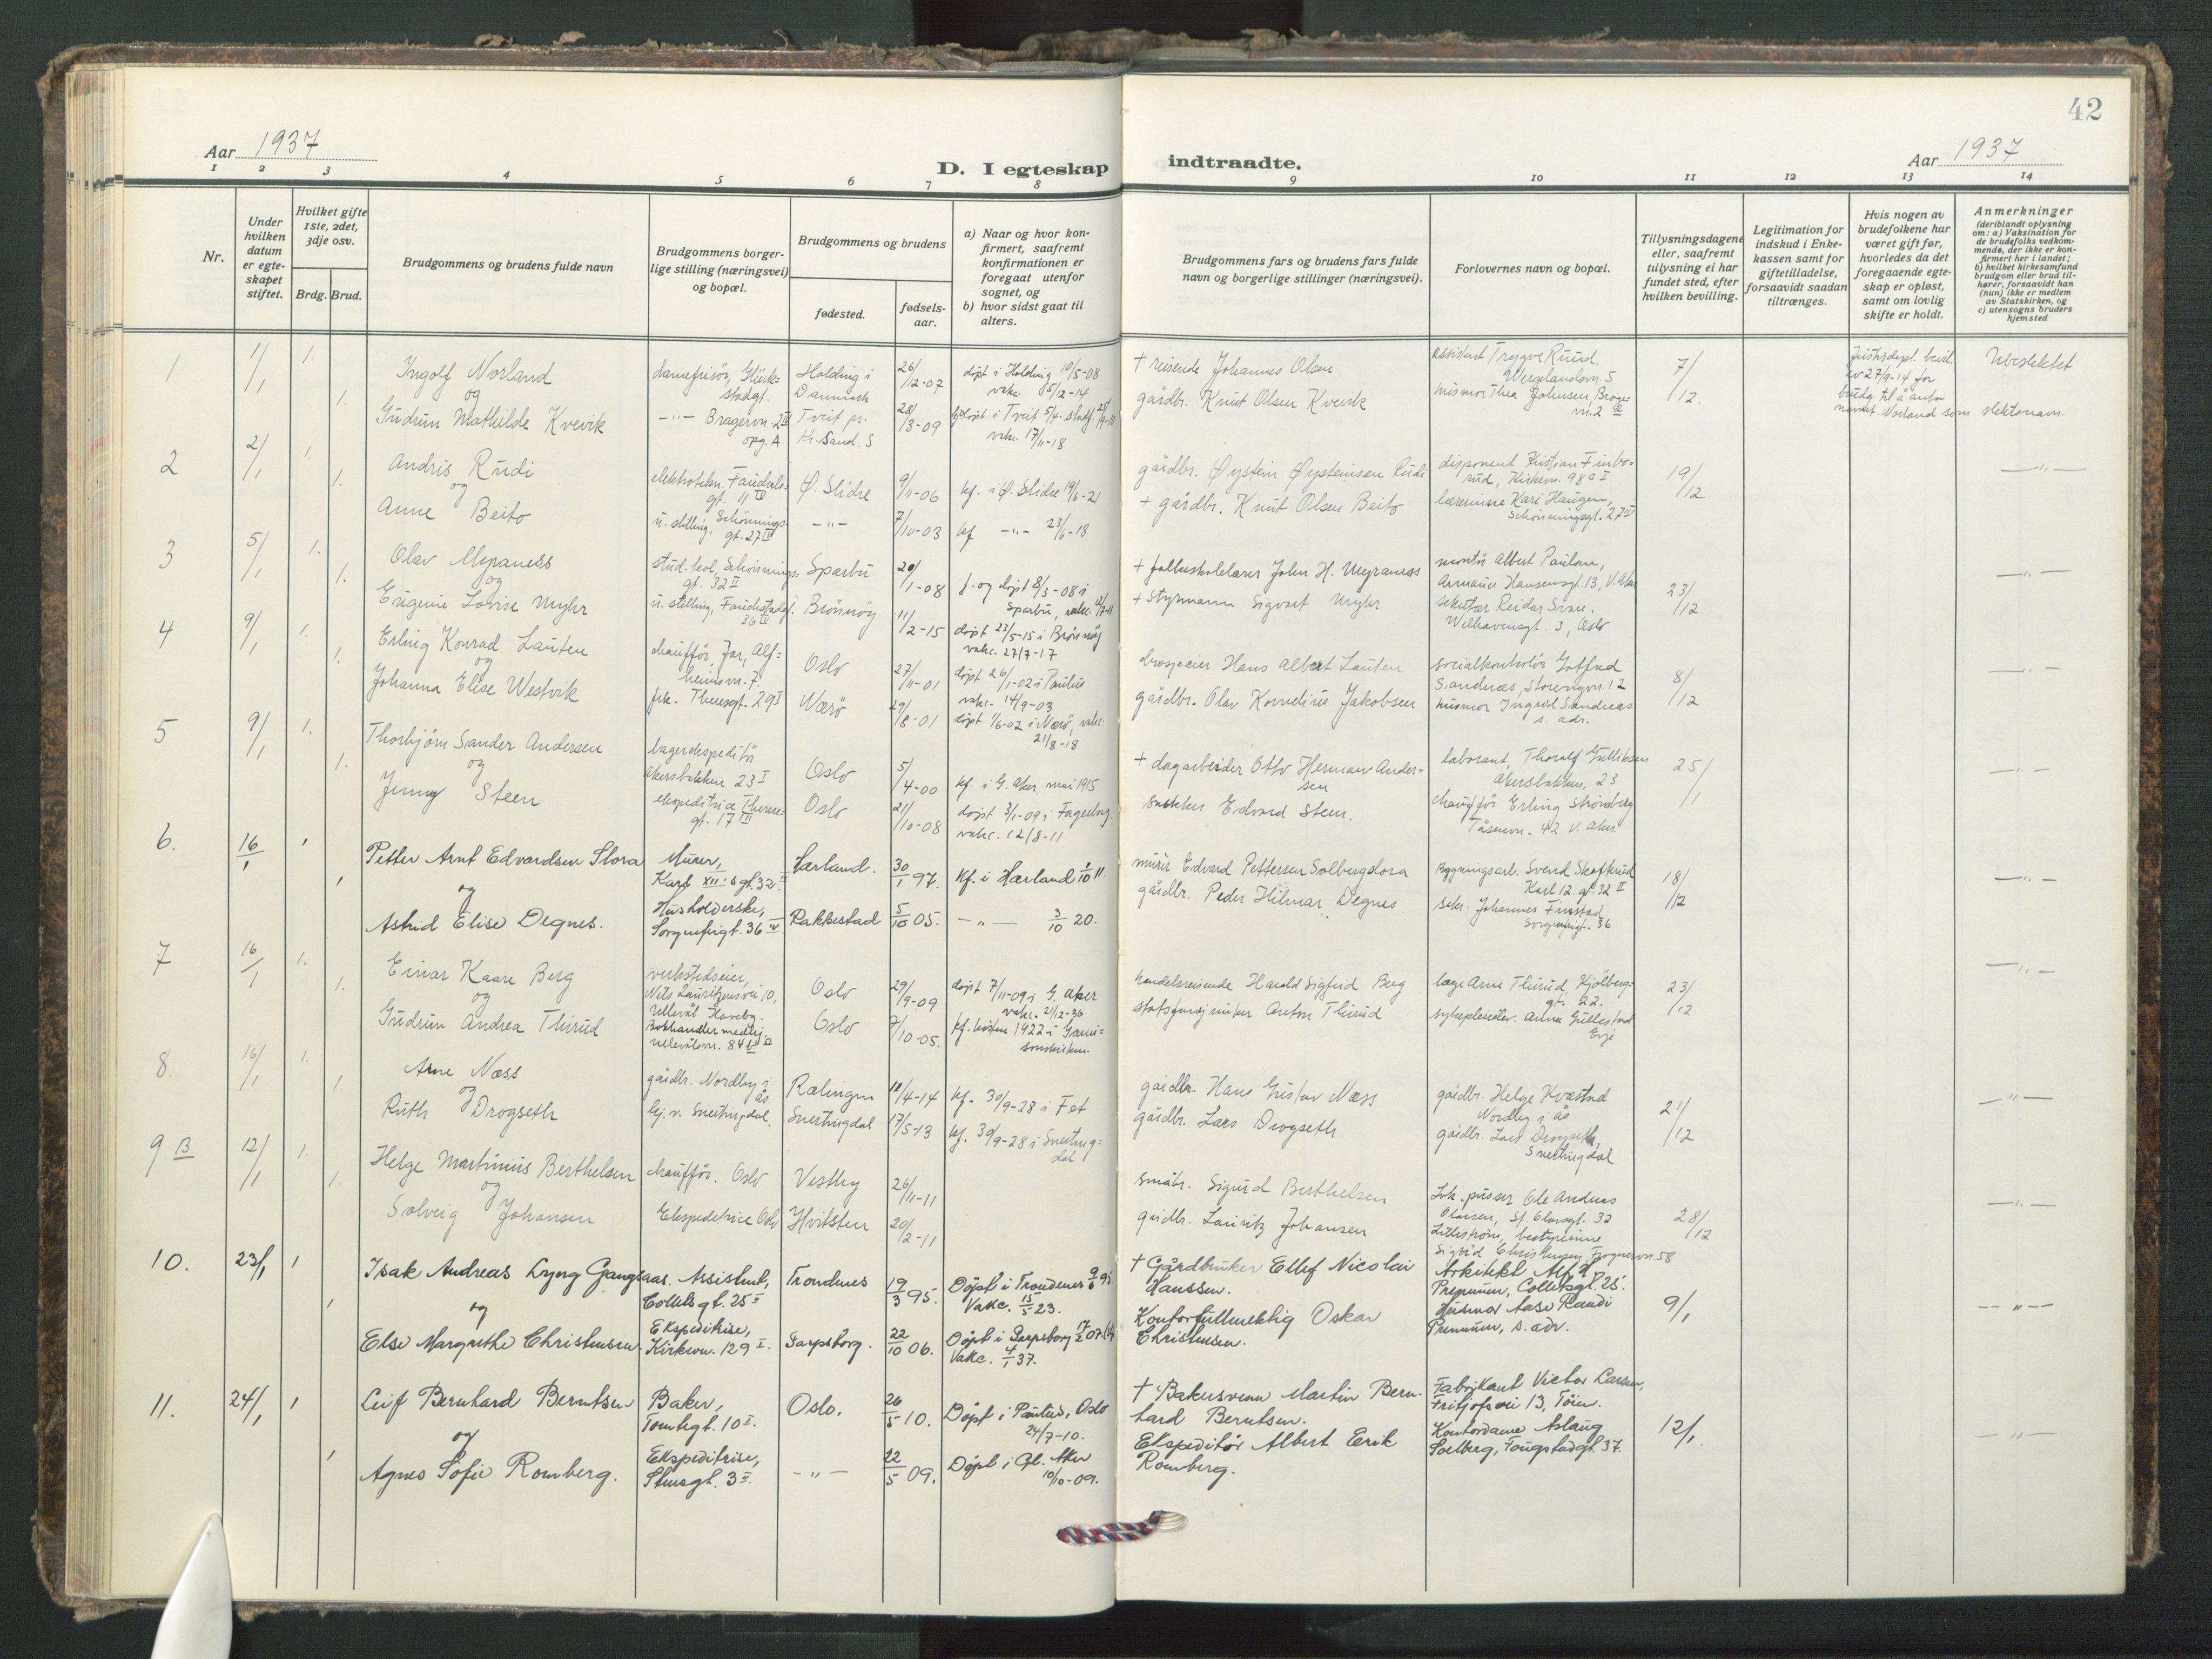 42
Aar 1937
D. I egteskap indtraadte.
Aar 1937
1 2 3 4 5 6 7 8 9 10 11 12 13 14
Nr.
Under hvilken datum er egteskapet stiftet.
Hvilket gifte 1ste, 2det, 3dje osv.
Brdg. Brud.
Brudgommens og brudens fulde navn
Brudgommens borgerlige stilling (næringsvei) og bopæl.
Brudgommens og brudens
fødested.
fødselsaar.
a) Naar og hvor konfirmert, saafremt konfirmationen er foregaat utenfor sognet, og
b) hvor sidst gaat til alters.
Brudgommens fars og brudens fars fulde navn og borgerlige stillinger (næringsvei).
Forlovernes navn og bopæl.
Tillysningsdagene eller, saafremt tillysning ei har fundet sted, efter hvilken bevilling.
Legitimation for indskud i Enkekassen samt for giftetilladelse, forsaavidt saadan tiltrænges.
Hvis nogen av brudefolkene har været gift før, hvorledes da det foregaaende egteskap er opløst, samt om lovlig skifte er holdt.
Anmerkninger
(deriblandt oplysning om: a) Vaksination for de brudefolks vedkommende, der ikke er konfirmert her i landet;
b) hvilket kirkesamfund brudgom eller brud tilhører, forsaavidt han (hun) ikke er medlem av Statskirken, og
c) utensogns bruders hjemsted
1 1/1 1.
Ingolf Norland
og
Gudrun Mathilde Kvevik
damefrisør, Glückstadgt.
Holding i Danmark
26/12-07
døpt i Holding 10/5-08
vakc. 5/2-14
Tveit pr. Kr.Sand. S
28/3-09
vakc. 17/11-18
+ reisende Johannes Olsen
gårdbr. Knut Olsen Kvevik
Assistent Trygve Ruud,
Wergelandsvn. 5
husmor Thea Johnsen,
7/12.
Ubeslektet
2 2/1 1.
Andris Rudi
og
Anne Beito
Ø. Slidre
9/11-06
kf. i Ø. Slidre 19/6-21
u. stilling, Schönningsgt. 27 IV
-"-
7/10-03
kf -"- 23/6-18
gårdbr. Øystein Øysteinsen Rudi
+ gårdbr. Knut Olsen Beito
disponent Kristian Finborud, Kirkevn. 98
lærerinne Kari Haugen,
Schönningsgt. 27 IV
19/12
-"-
3 5/1 1.
Olav Meraness
og
Eugenie Lovise Myhr
stud. teol, Schönningsgt. 32 II
Sparbu
20/1-08
f. og døpt 8/3-08 i Sparbu,
u. stilling,
Brönnöy
11/2-15
døpt 23/5-15 i Brönnöy
vakc. 27/7-17
+ folkeskolelærer John H. Meraness
+ Styrmann Sigvart Myhr
montör Albert Paulsen,
Armauer Hansensgt. 13, V. Aker
sekretær Reidar Sivre.
Welhavensgt. 3, Oslo
23/12
-"-
4 9/1 1.
Erling Konrad Lauten
og
Johanna Elise Westvik
chauffør, Jar, Alfheimsvn. 7.
Oslo
27/11-01
døpt 26/1-02 i Paulus
vakc. 14/9-03
frk. Theresgt. 29 I
Værö
29/8-01
døpt 1/6-02 i Værö, vakc.
21/8-18
Hans Albert Lauten
gårdbr. Olav Kornelius Jakobsen
socialkontrolör Gotfred Sandnæs, Storengvn. 12
husmor Ingrid Sandnæs
s. adr.
8/12
-"-
5 9/1 1.
Thorbjörn Sander Andersen
og
Jenny Steen
lagerekspeditör
Akersbakken 23 I
Oslo
5/4-00
kf. i G. Aker, mai 1915
ekspeditrice Theresegt. 17 III
Oslo
21/10-08
døpt 3/1-09 i Fagerborg.
vakc. 12/8-11
+ dagarbeider Otto Herman Andersen
snekker Edvard Steen.
laborant, Thoralf Gulliksen
Akersbakken, 23
chauffør Erling Strömberg
Tåsenvn. 42 V. Aker
25/1
-"-
6. 16/1 1
Petter Arnt Edvardsen Slora
og
Astrid Elise Degnes.
Murer,
Karl XII's gt. 32 II
Hærland.
30/1 97.
Kf. i Hærland 1/10 11
Husholderske,
Sorgenfrigt. 36 IV
Rakkestad
5/10 05.
-"- 3/10 20.
murer Edvard Pettersen Solbergslora
gårdbr. Peder Hilmar Degnes
Bygningsarb. Svend Skoftrud
Karl 12. gt. 32 II
sekr. Johannes Finstad
Sorgenfrigt. 36
18/12
-"-
7 16/1 1.
Einar Kaare Berg
og
Gudrun Andrea Thirud
verkstedseier,
Nils Lauritzensvei 10,
Ullevål Haveby.
Oslo
29/9-09
døpt 7/11-09 i G. Aker
vakc. 21/12-36
Bokhandlermedhj.
Ullevålsvn. 84
Oslo
7/10-05.
kf. hösten 1922 i Garnisonskirken.
handelsreisende Harald Sigfrid Berg
Anton Thirud
læge Arne Thirud Kjölberggt. 22.
sykepleierske. Anna Gullestad
Evje
23/12
-"-
8. 16/1 1.
Arne Næss
og
Ruth Drogseth
gårdbr. Nordby i Ås
Rælingen
18/4-14
kf. 30/9-28 i Fet
Snertingdal
17/5-13
kf. 30/9-28 i Snertingdal
gårdbr. Hans Gustav Næss
gårdbr. Lars Drogseth
gårdbr. Helge Kvæstad
Nordby i Ås
gårdbr. Lars Drogseth,
Snertingdal
21/12
-"-
9 B 12/1 1.
Helge Martinius Berthelsen
og
Solveig Johansen
chauffør. Oslo
Vestby
26/11-11
Ekspeditrice Oslo
Hvitsten
20/2-11
småbr. Sigurd Berthelsen
gårdbr. Lauritz Johansen
Lok. pusser Ole Andreas
Olaisen, St. Olavsgt. 32
Lilleström, bestyrerinne
Sigrid Christensen, Frognervn. 58
28/12
-"-
10. 23/1 1
Isak Andreas Lyng Gangsaas.
og
Else Margrethe Christensen
Assistent,
Colletsgt. 25 II
Trondenes
19/3 95.
Döpt i Trondenes 9/6 95
Vakc. 15/5 23.
Ekspeditrise,
Kirkevn. 129 I.
Sarpsborg.
22/10 06.
Döpt i Sarpsborg 17/2 07.
Vakc. 4/1 37.
+ Gårdbruker Ellef Nicolai
Hanssen.
Kontorfullmektig Oskar
Christensen.
Arkitekt Alf H.
Colletsgt. 25.
Husmor Aase Randi
s. adr.
9/1
-"-
11. 24/1 1
Leif Bernhard Berntsen
og
Agnes Sofie Romberg.
Baker,
Tomtegt. 10 I.
Oslo.
26/5 10.
Döpt i Paulus, Oslo
24/7-10.
Ekspeditrise,
Stensgt. 3 II.
-"-
22/5 09.
Döpt i Gl. Aker
10/10-09.
+ Bakersvenn Martin Bernhard Berntsen.
Ekspeditör Albert Erik
Romberg.
Fabrikant Victor Larsen,
Fritjofsvei 13, Töien.
Kontordame Aslaug
Solberg, Fougstadgt. 37.
12/1
-"-